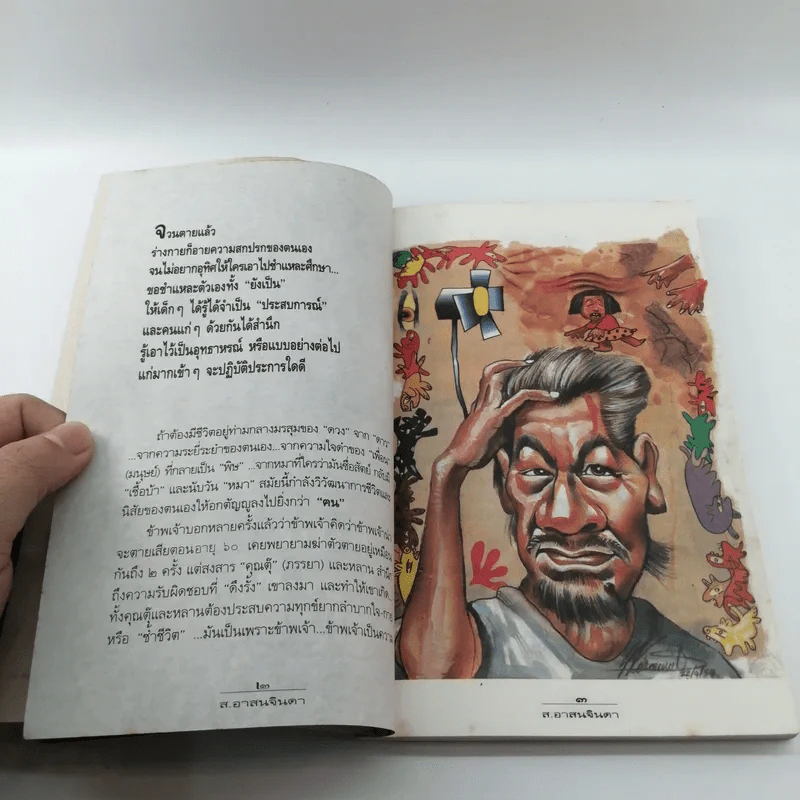 จวนตายแล้ว
ร่างกายก็อายความสกปรกของตนเอง
จนไม่อยากอุทิศให้ใครเอาไปชำแหละศึกษา...
ขอชำแหละตัวเองทั้ง “ยังเป็น”
ให้เด็กๆ ได้รู้ได้จำเป็น “ประสบการณ์”
และคนแก่ๆ ด้วยกันได้สำนึก
รู้เอาไว้เป็นอุทธาหรณ์ หรือแบบอย่างต่อไป
แก่มากเข้าๆ จะปฏิบัติประการใดดี
ถ้าต้องมีชีวิตอยู่ท่ามกลางมรสุมของ “ดวง” จาก “ดาว”
...จากความระยี่ระยำของตนเอง...จากความใจดำของ “เพื่อน”
(มนุษย์) ที่กลายเป็น “พิษ” ...จากหมาที่ใครว่ามันซื่อสัตย์
“เชื้อบ้า” และนับวัน “หมา” สมัยนี้กำลังวิวัฒนาการชีวิตและ
นิสัยของตนเองให้อกตัญญูลงไปยิ่งกว่า “ฅน”
ข้าพเจ้าบอกหลายครั้งแล้วว่าข้าพเจ้าคิดว่าข้าพเจ้า
จะตายเสียตอนอายุ ๖๐ เคยพยายามฆ่าตัวตายอยู่เหมือน
กันถึง ๒ ครั้ง แต่สงสาร “คุณตุ๊” (ภรรยา) และหลาน
ถึงความรับผิดชอบที่ “ดึงรั้ง” เขาลงมา และทำให้เขาเกิด
ทั้งคุณตุ๊และหลานต้องประสบความทุกข์ยากลำบากใจ-กาย
หรือ “ช้ำชีวิต” ...มันเป็นเพราะข้าพเจ้า...ข้าพเจ้าเป็น
ส.อาสนจินดา
๓
ส.อาสนจินดา